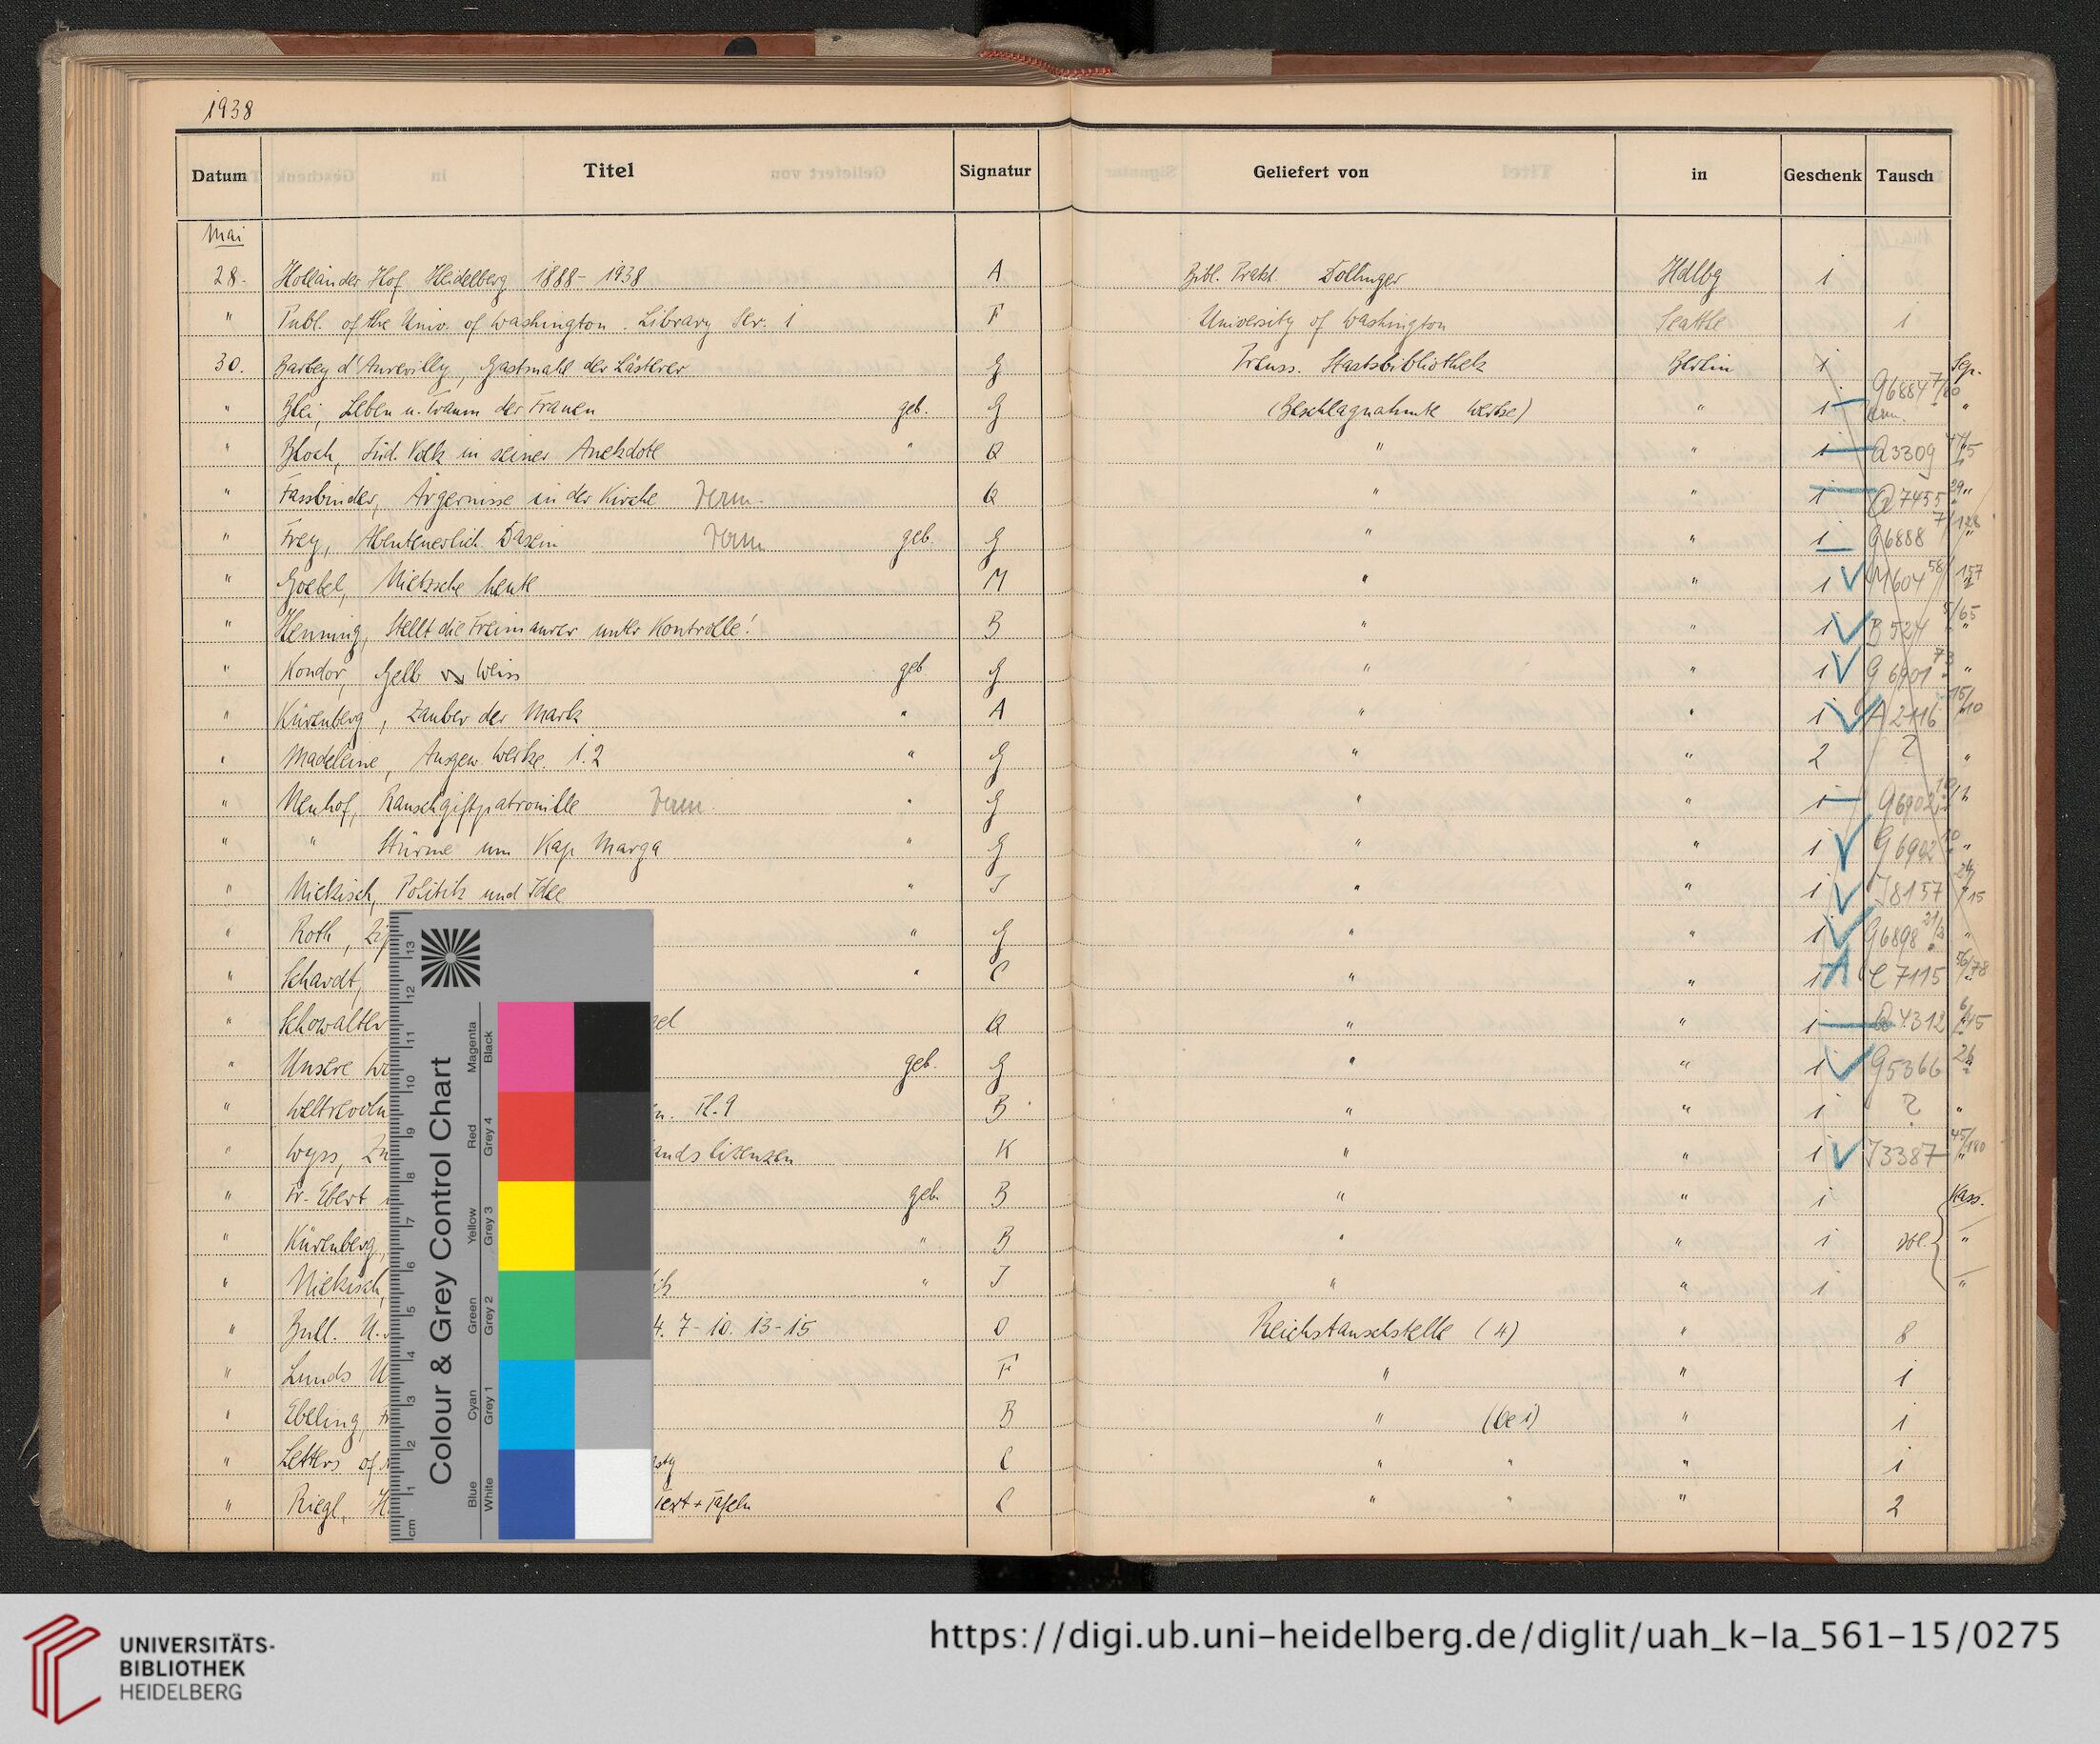 1938
Datum Titel Signatur Geliefert von in Geschenk Tausch
Mai
28. Holländer Hof Heidelberg 1888-1938 A Bibl. Prakt. Dollinger Hdlbg 1
" Publ. of the Univ. of Washington. Library Ser. 1 F University of Washington Seattle 1
30. Barbey d'Aurevilly, Gastmahl der Lästerer G Preuss. Staatsbibliothek Berlin 1 Sep.
" Blei, Leben u. Traum der Frauen geb. G (Beschlagnahmte Werke) " 1 G6884 7/80 "
" Bloch, Jüd. Volk in seiner Anekdote " Q " " 1 Q3309
" Fassbinder, Ärgernisse in der Kirche Verm. Q " " 1 Q7455 29 "
" Frey, Abenteuerlich. Dasein Verm geb. G " " 1 G6888 7/128 "
" Goebel, Nietzsche heute M " " 1 M604 58/157 "
" Henning, Stellt die Freimaurer unter Kontrolle! B " " 1 B 524 5/65 "
" Kondor, Gelb Weiss geb G " " 1 G6901 73 "
" Kürenberg, Zauber der Mark " A " " 1 A2116 15/10
" Madeleine, Ausgew. Werke. 1.2 " G " " 2 ? "
" Neuhof, Rauschgiftpatrouille Verm. " G " " 1 G6902 10
" " Stürme um Kap Marga " G " " 1 G6902 10 "
" Niekisch, Politik und Idee " J " " 1 J8157 24/15
" Roth, " G " " 1 G6898 21/3 "
" Schardt, " C " " 1 C7115 56/78
" Schowalter el Q " " 1 Q4312 6/45
" Unsere geb. G " " 1 G5366 26 "
" Weltrevolu n. Tl. 9 B " " 1 ? "
" Wyss, Zu andslizenzen K " " 1 J3387 45/180
" Fr. Ebert geb. B " " 1 Kass.
" Kürenberg, " B " " 1 "
" Niekisch, ik " J " " 1 "
" Bull. U. 4. 7-10. 13-15 O Reichstauschstelle (4) " 8
" Lunds U F " " 1
" Ebeling, B " (bei) " 1
" Letters of sty C " " " 1
" Riegl, Text + Tafeln C " " " 2
Colour & Grey Control Chart
Blue Cyan Green Yellow Red Magenta
White Grey 1 Grey 2 Grey 3 Grey 4 Black
cm 1 2 3 4 5 6 7 8 9 10 11 12 13
UNIVERSITÄTS-
BIBLIOTHEK
HEIDELBERG
https://digi.ub.uni-heidelberg.de/diglit/uah_k-Ia_561-15/0275